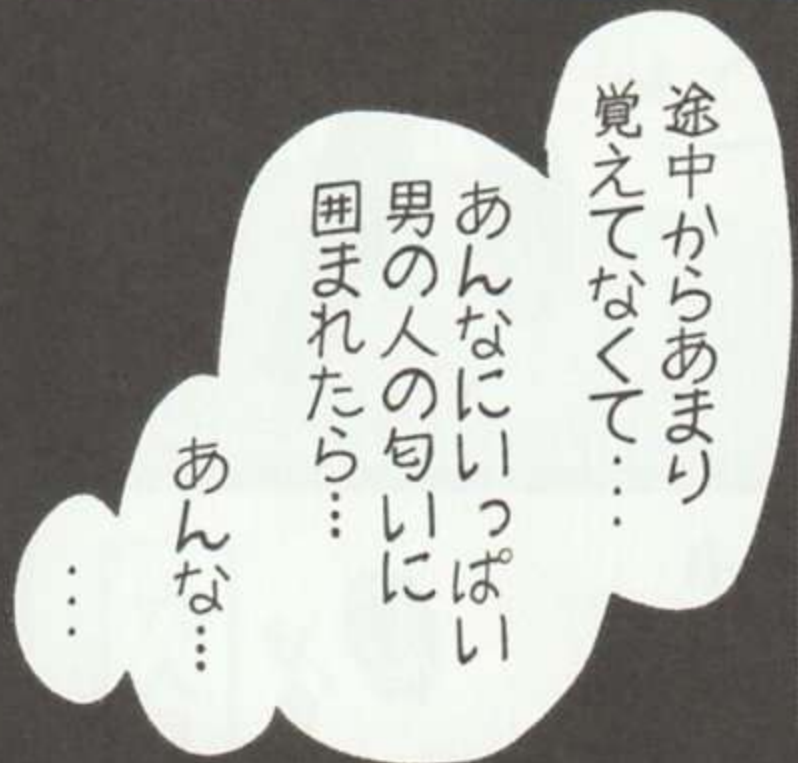 途中からあまり
覚えてなくて....
あんなにいっぱい
男の人の匂いに
囲まれたら…
あんな…
…